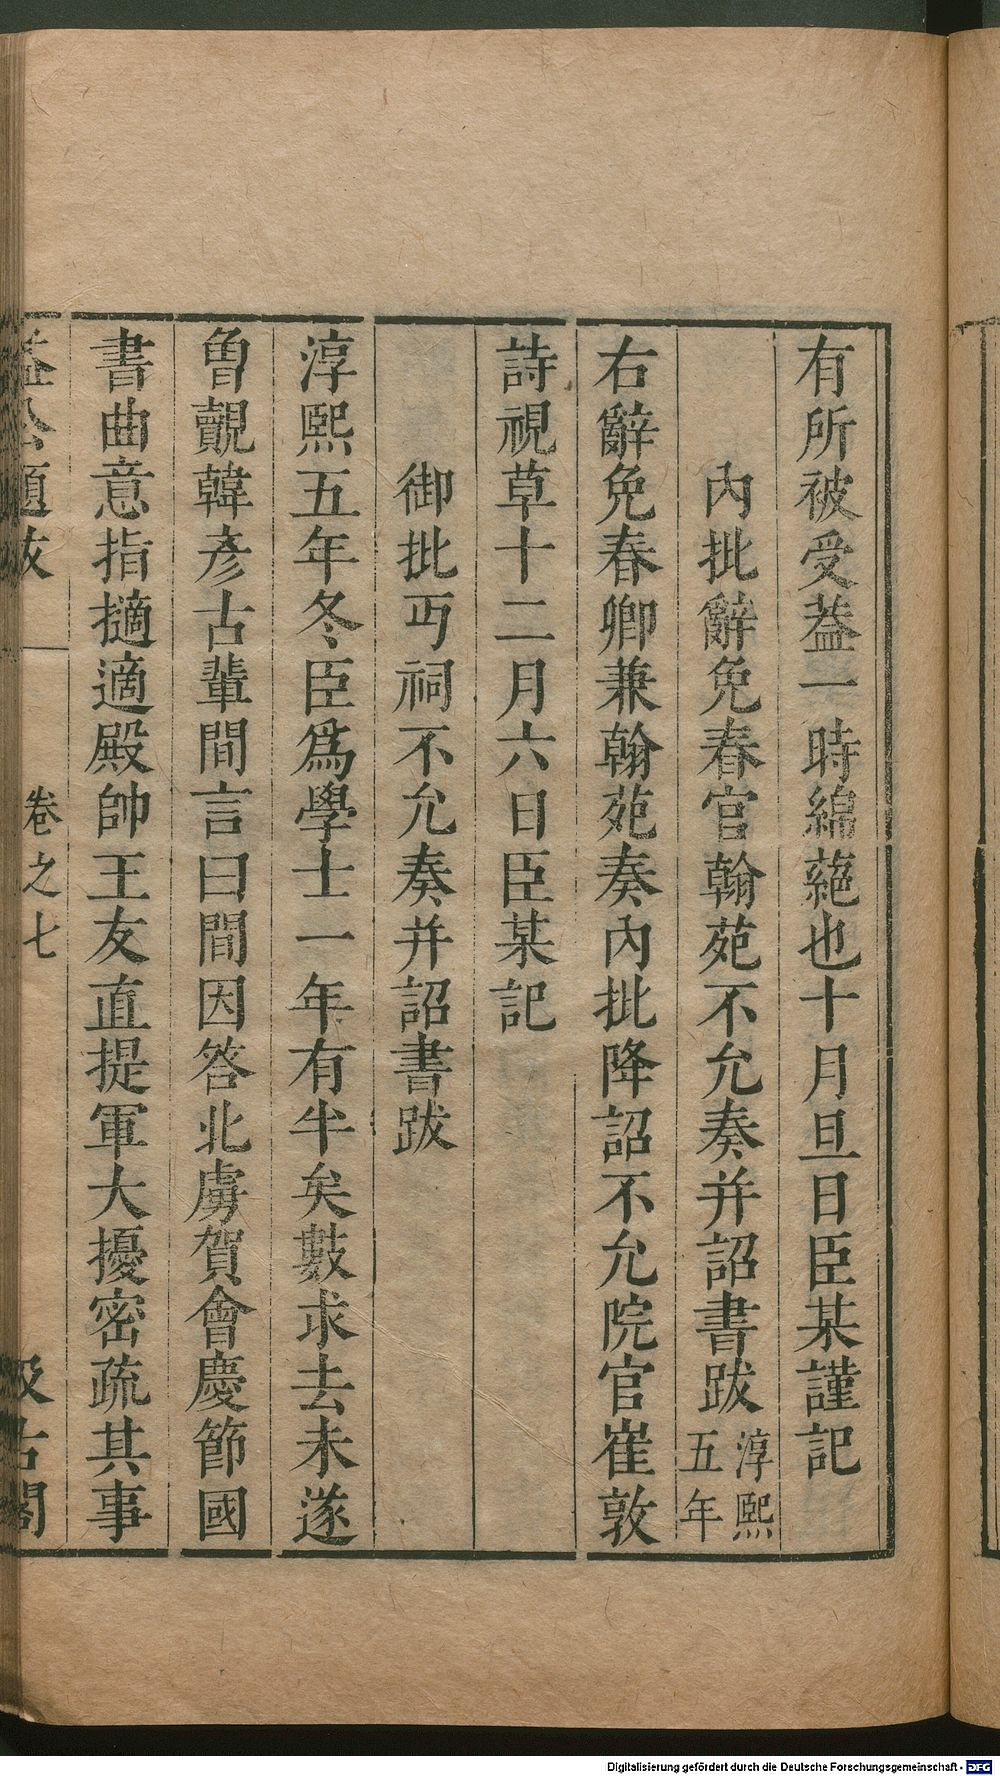 有所被受葢一時綿蕝也十月旦日臣某謹記
內批辭免春官翰苑不允奏并詔書跋淳熙五年
右辭免春卿兼翰苑奏內批降詔不允院官崔敦
詩視草十二月六日臣某記
御批丐祠不允奏并詔書跋
淳熙五年冬臣爲學士一年有半矣數求去未遂
曾覿韓彥古輩間言曰間因答北虜賀會慶節國
書曲意指擿適殿帥王友直提軍大擾密疏其事
益公題跋 卷之七 汲古閣
Digitalisierung gefördert durch die Deutsche Forschungsgemeinschaft - DFG